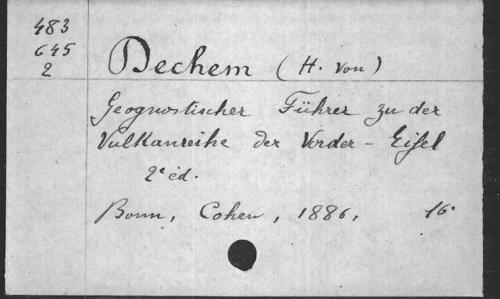 483
645
2
Dechem (H. von)
Geognostischer Führer zu der
Vulkanreihe der Vorder-Eifel
2e éd.
Bonn, Cohen, 1886, 16°